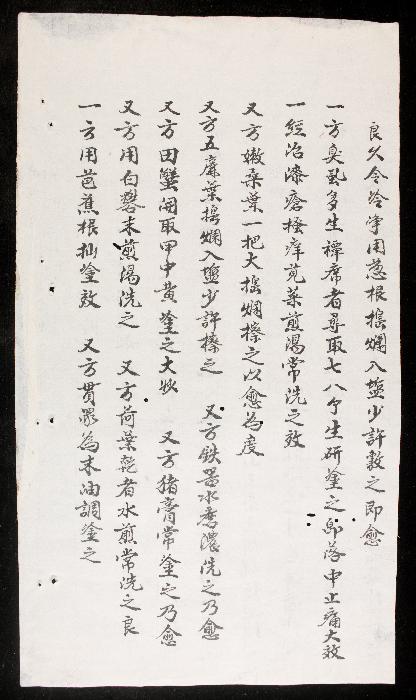 良久令冷淨用葱根搗爛入塩少許敷之即愈
一方臭虱多生褥席者尋取七八个生研塗之即落中止痛大效
一經治漆瘡搔痒莧菜煎湯常洗之效
又方嫩桑葉一把大搗爛擦之以愈為度
又方五葉搗爛入塩少許擦之 又方鉄器水磨濃洗之乃愈
又方田蟹開取甲中黄塗之大妙 又方猪膏常塗之乃愈
又方用白礬末煎湯洗之 又方荷葉乾者水煎常洗之良
一方用芭蕉根塗效 又方貫眾為末油調塗之